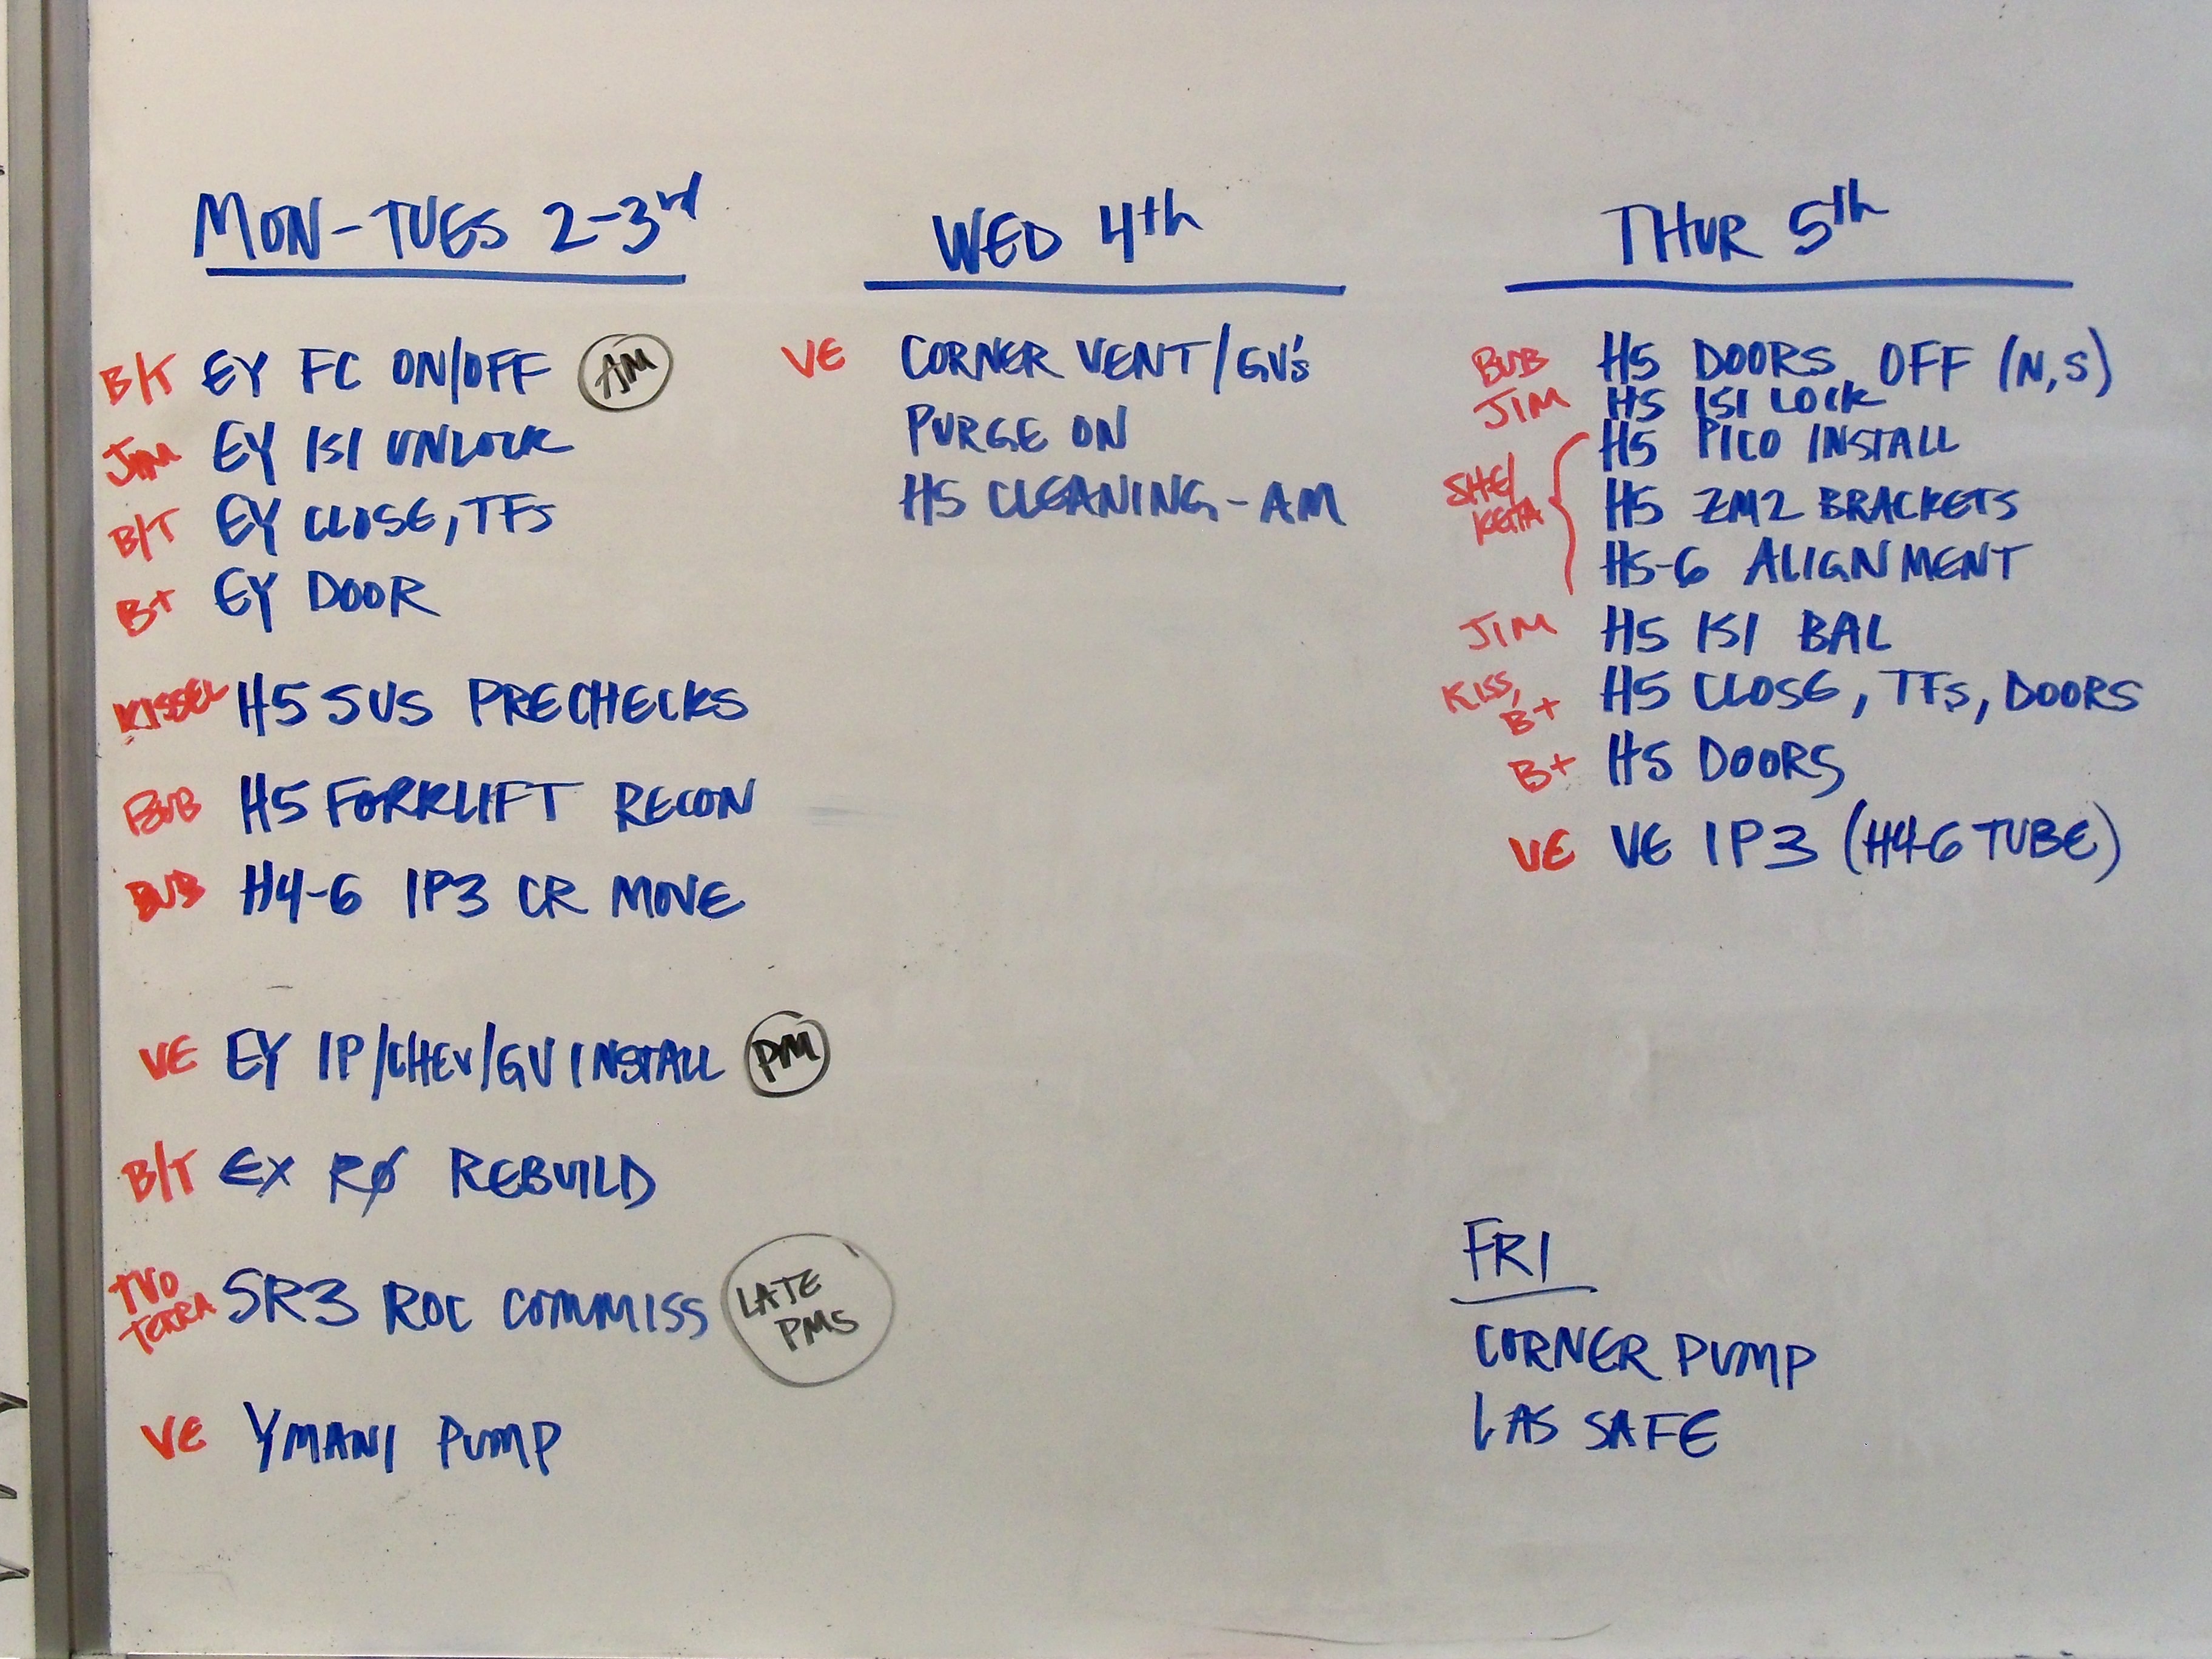 MON-TUES 2-3rd
B/T EY FC ON/OFF AM
JIM EY ISI UNLOCK
B/T EY CLOSE, TFS
B+ EY DOOR
KISSEL H5 SUS PRECHECKS
BUB H5 FORKLIFT RECON
BUB H4-6 IP3 CR MOVE
VE EY IP/CHEV/GV INSTALL PM
B/T EX RØ REBUILD
TVO
TERRA SR3 ROC COMMISS LATE
PMS
VE YMANI PUMP
WED 4th
VE CORNER VENT/GV's
PURGE ON
H5 CLEANING-AM
THUR 5th
BUB H5 DOORS OFF (N,S)
JIM H5 ISI LOCK
H5 PICO INSTALL
SHE/
KEITA H5 ZM2 BRACKETS
H5-6 ALIGNMENT
JIM H5 ISI BAL
KISS,
B+ H5 CLOSE, TFS, DOORS
B+ H5 DOORS
VE VE IP3 (H4-6 TUBE)
FRI
CORNER PUMP
LAS SAFE